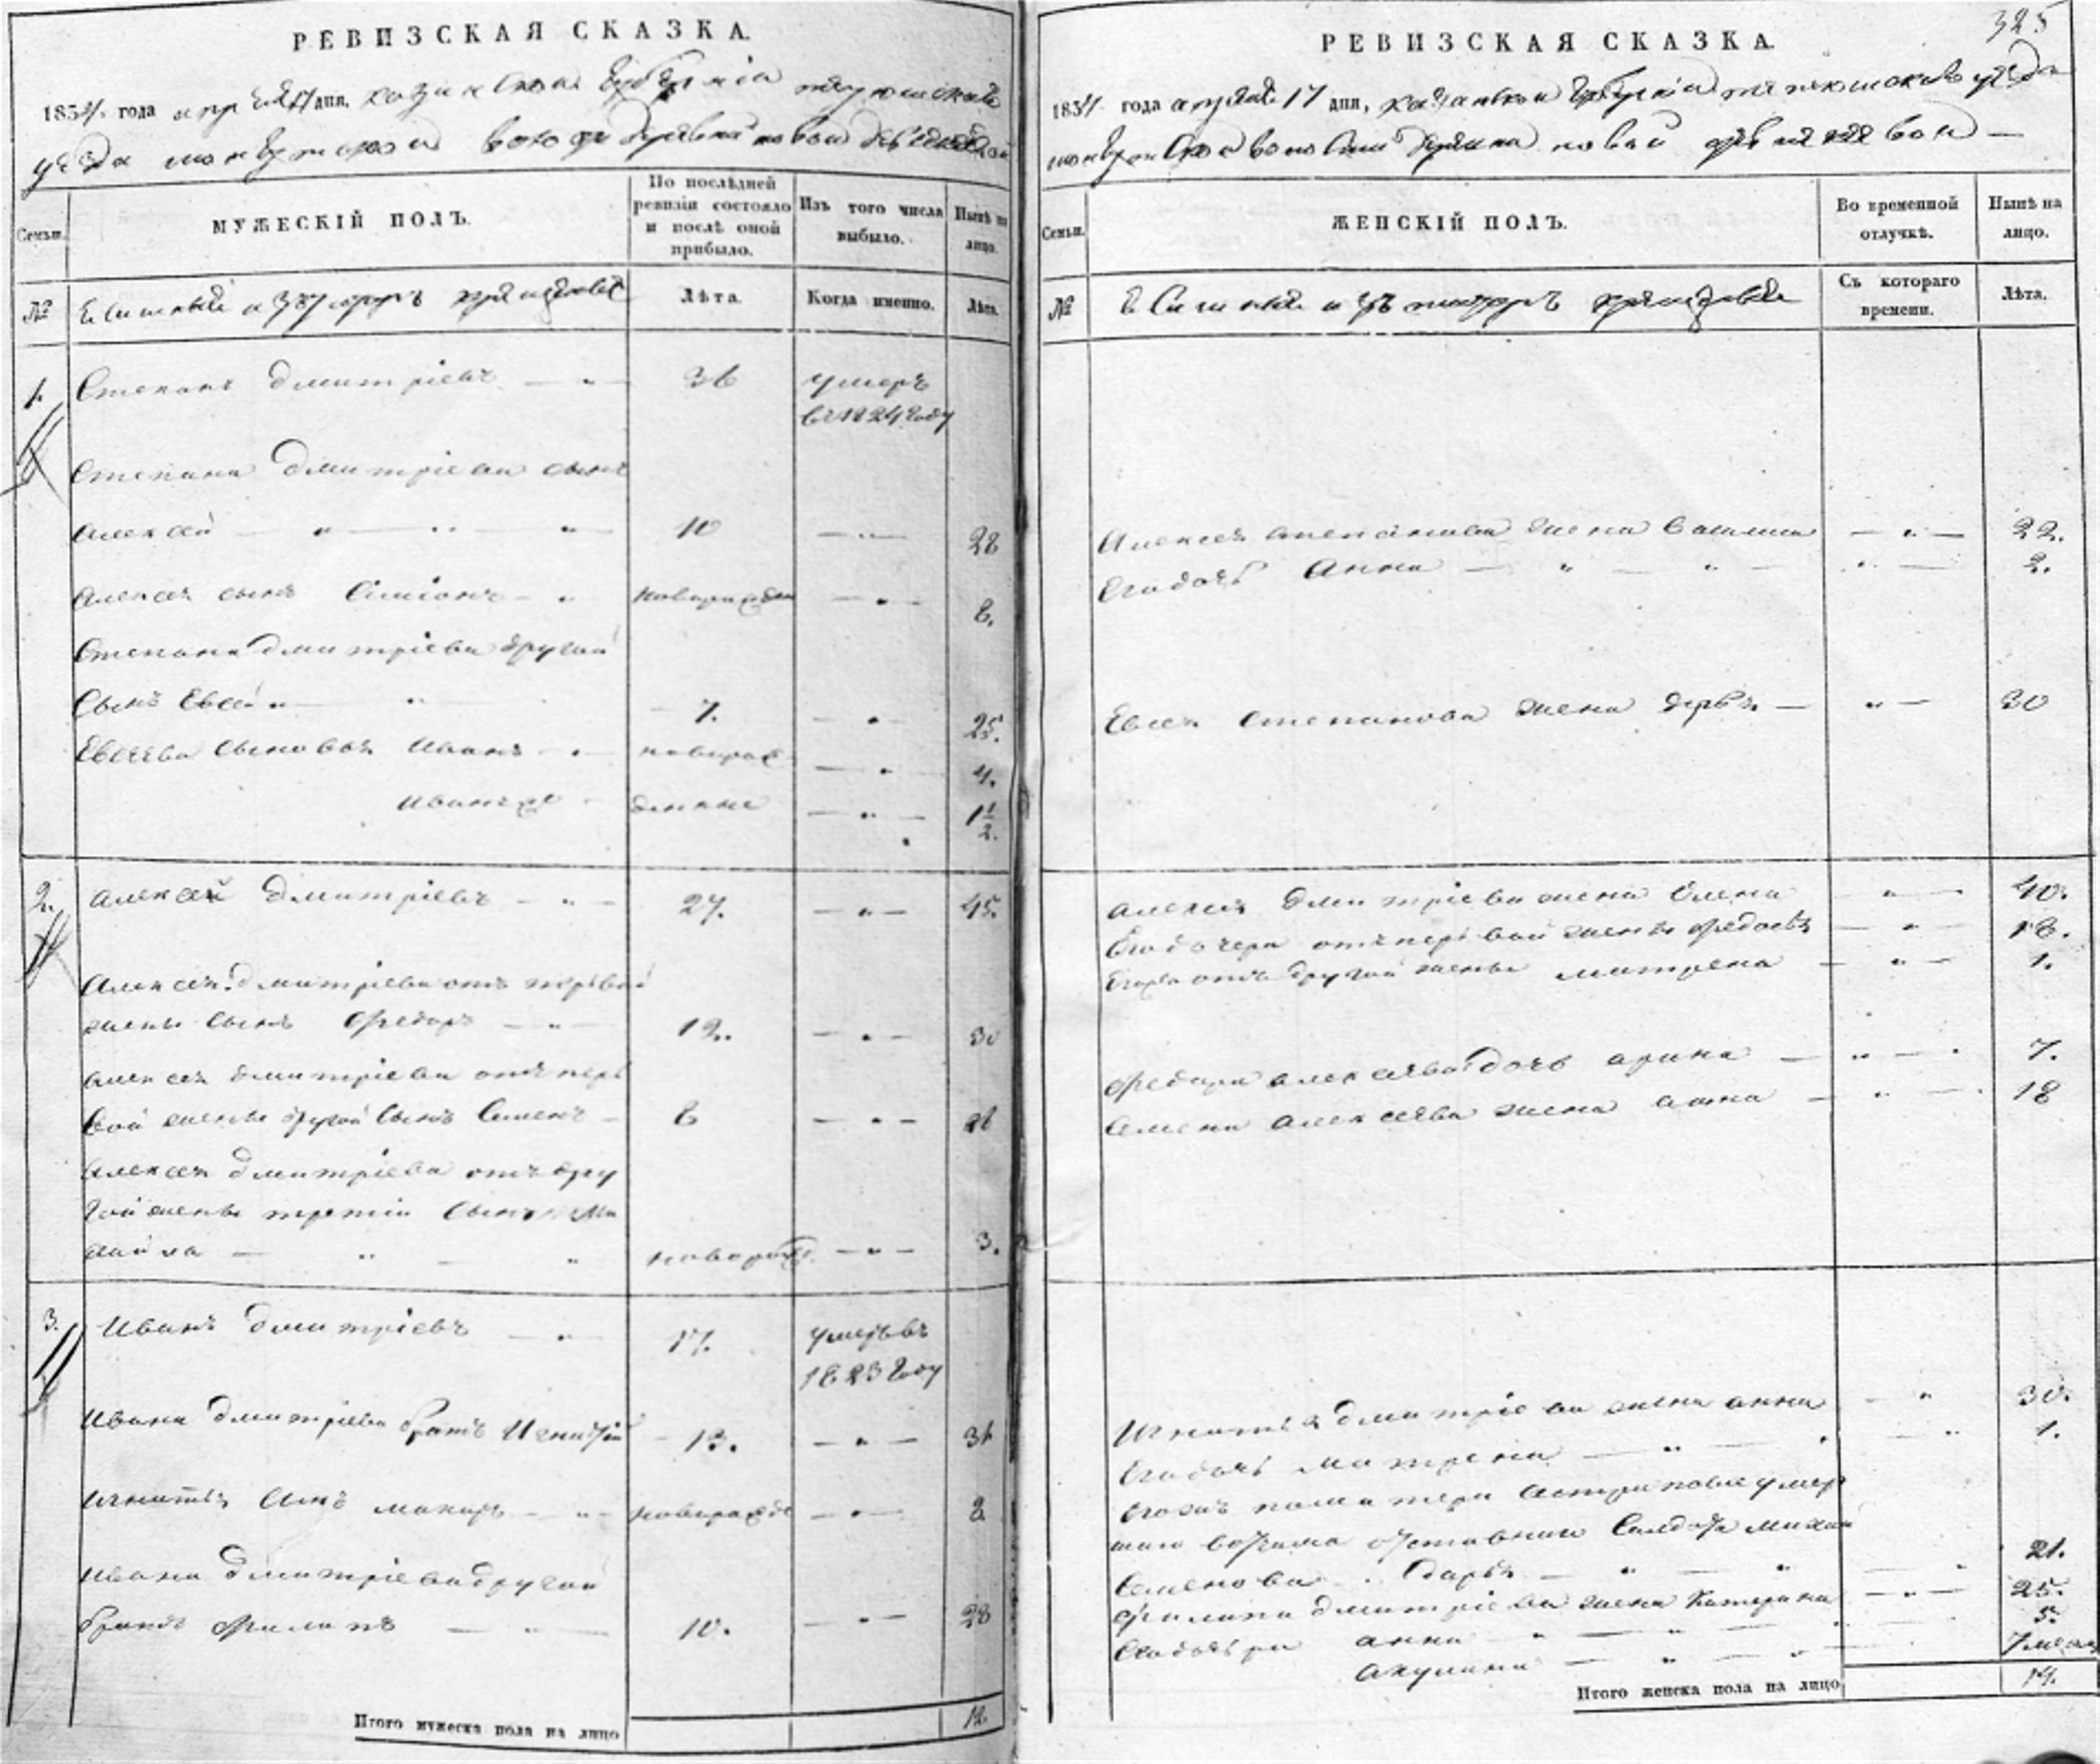 РЕВИЗСКАЯ СКАЗКА.
1834. года апреля 17 дня, казанской губернии
уезда волости деревни новой
Семьи.
МУЖЕСКІЙ ПОЛЪ.
По послѣдней ревизіи состояло и послѣ оной прибыло.
Изъ того числа выбыло.
Нынѣ на лицо.
№
Лѣта.
Когда именно.
Лѣта.
1. Степанъ Дмитріевъ 36 умеръ
въ 1824 году
Степана Дмитріева сынъ
Алексей 10 28
Алексея сынъ Симіонъ новорожден 8.
Степана Дмитріева другой
сынъ Евсей 7. 25.
Евсеева сыновья Иванъ новорож 4.
Иванъ же денные 1 1/2.
2. Алексей Дмитріевъ 27. 45.
Алексея Дмитріева отъ первой
жены сынъ Федоръ 12. 30
Алексея Дмитріева отъ пер
вой жены другой сынъ Семенъ 8
Алексея Дмитріева отъ дру
гой жены третій сынъ Ми
хайла новорожд. 3.
3. Иванъ Дмитріевъ 17. умеръ въ
1823 году
Ивана Дмитріева братъ Игнатій 13. 31
Игнатья сынъ Макаръ новорожде 2
Ивана Дмитріева другой
братъ Филипъ 10. 28
Итого мужеска пола на лицо 12.
325
РЕВИЗСКАЯ СКАЗКА.
1834. года апреля 17 дня, казанской губернии уезда
волости деревни новой
Семьи.
ЖЕНСКІЙ ПОЛЪ.
Во временной отлучкѣ.
Нынѣ на лицо.
№
Съ котораго времени.
Лѣта.
Алексея Степанова жена Василиса 22.
Его дочь Анна 2.
Евсея Степанова жена 30
Алексея Дмитріева жена Олена 40.
Его дочери отъ первой жены Федосья 18.
Его же отъ другой жены Матрена 1.
Федора Алексеева дочь Арина 7.
Семена Алексеева жена Анна 18
Игнатья Дмитріева жена Анна 30.
Его дочь Матрена 1.
Михай
Семенова Дарья 21.
Филипа Дмитріева жена Катерина 25.
Его дочери Анна 5.
Акулина 7 меся
Итого женска пола на лицо 14.